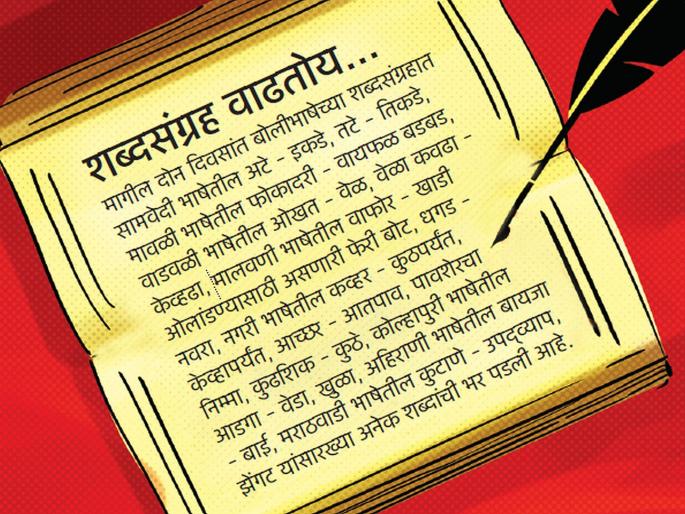 शब्दसंग्रह वाढतोय...
मागील दोन दिवसांत बोलीभाषेच्या शब्दसंग्रहात
सामवेदी भाषेतील अटे - इकडे, तटे - तिकडे,
मावळी भाषेतील फोकादरी - वायफळ बडबड,
वाडवळी भाषेतील ओखत - वेळ, वेळा कवढा -
केव्हढा, मालवणी भाषेतील वाफोर - खाडी
ओलांडण्यासाठी असणारी फेरी बोट, धगड -
नवरा, नगरी भाषेतील कव्हर - कुठपर्यंत,
केव्हापर्यंत, आच्छर - आतपाव, पावशेरचा
निम्मा, कुढशिक - कुठे, कोल्हापुरी भाषेतील
आडगा - वेडा, खुळा, अहिराणी भाषेतील बायजा
- बाई, मराठवाडी भाषेतील कुटाणे - उपद्व्याप,
झेंगट यांसारख्या अनेक शब्दांची भर पडली आहे.